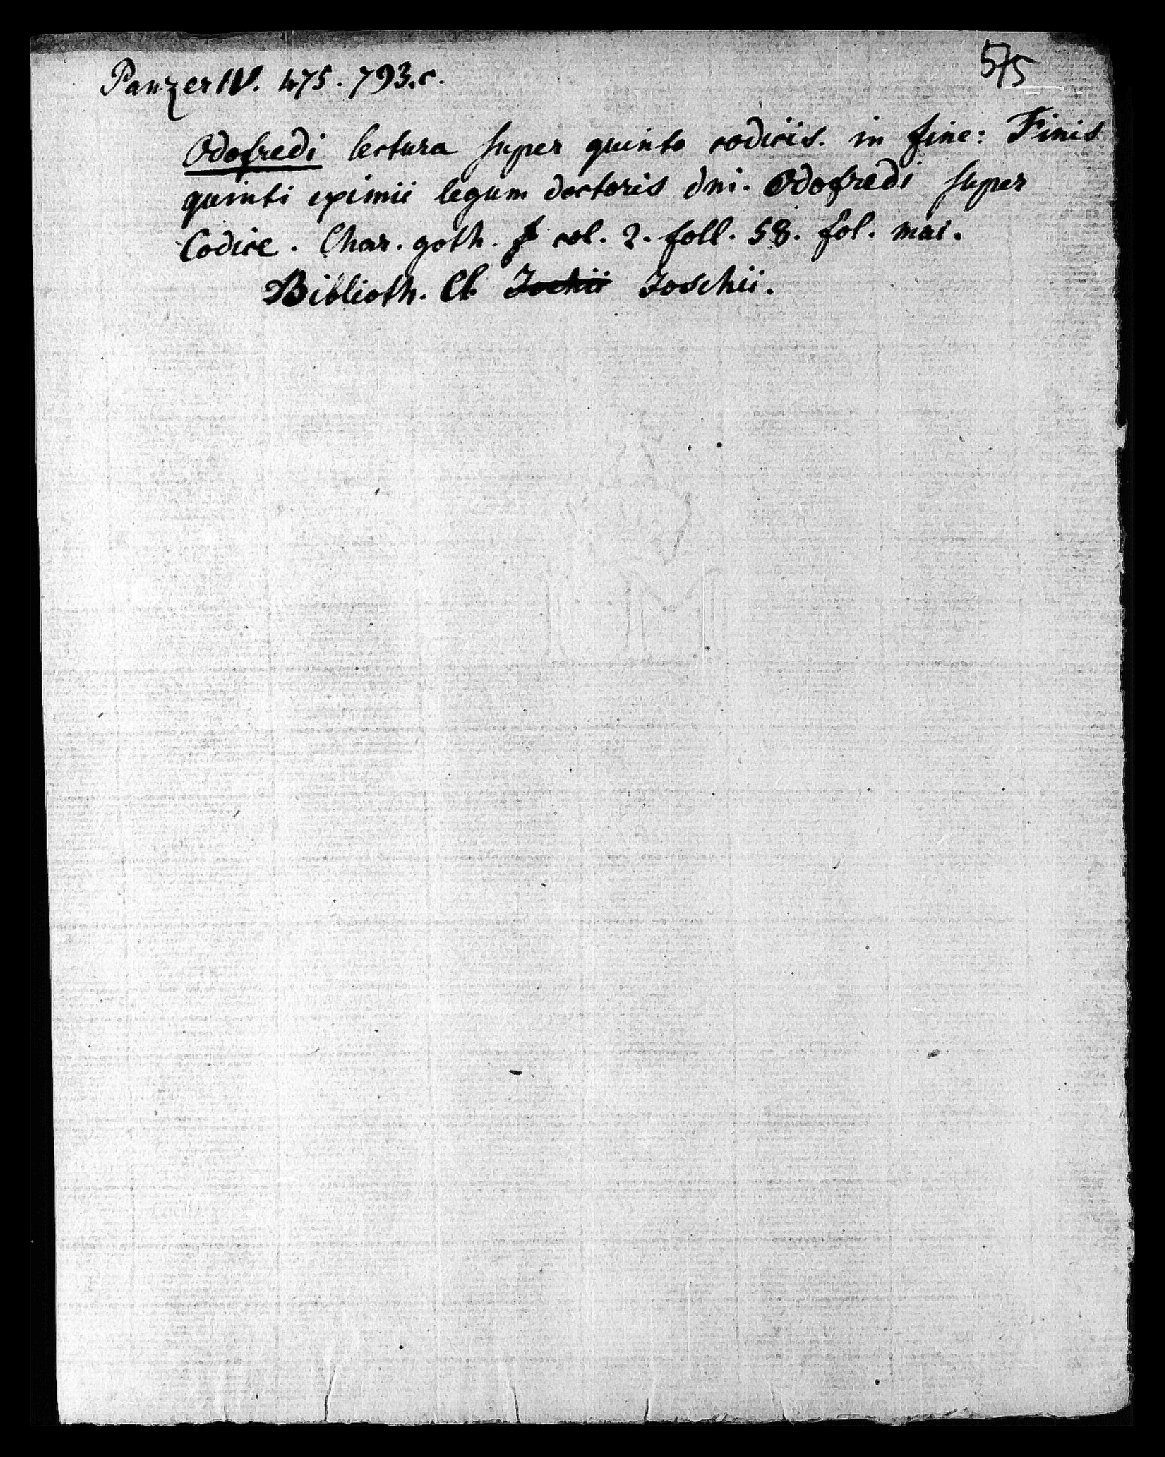 575
Panzer IV. 475. 793.c.
Odofredi lectura super quinto codicis. in fine: Finis
quinti eximii legum doctoris dni. Odofredi super
Codice. Char. goth. col. 2. foll. 58. fol. mai.
Biblioth. Cl. Zochii Zoschii.